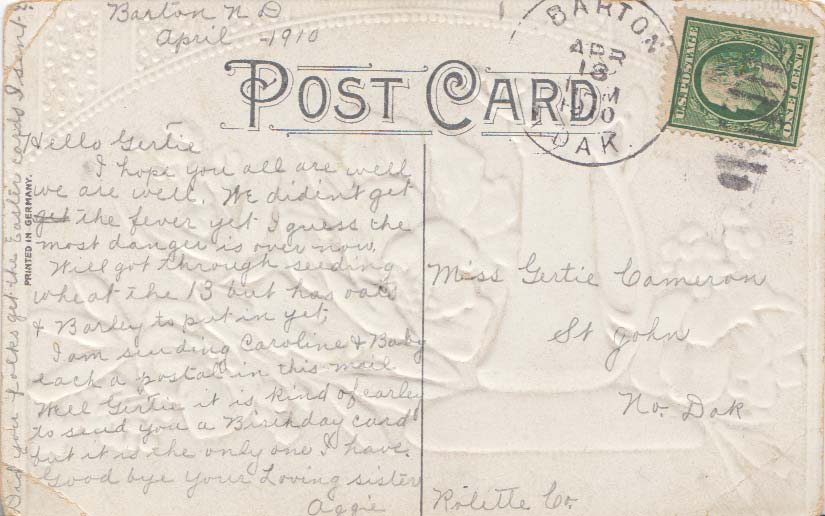 Barton N D
April -1910
POST CARD
BARTON
APR
13
M
1910
DAK.
U.S. POSTAGE
ONE CENT
PRINTED IN GERMANY.
Did you folks get the Easter cards I sent?
Hello Gertie
I hope you all are well
we are well. We did'ent get
get the fever yet I guess the
most danger is over now.
Will got through seeding
wheat the 13 but has oats
& Barley to put in yet.
I am sending Caroline & Baby
each a postal in this mail
Well Gertie it is kind of earley
to send you a Birthday card
but it is the only one I have.
Good bye your Loving sister
Aggie
Miss Gertie Cameron
St John
No. Dak
Rolette Co.